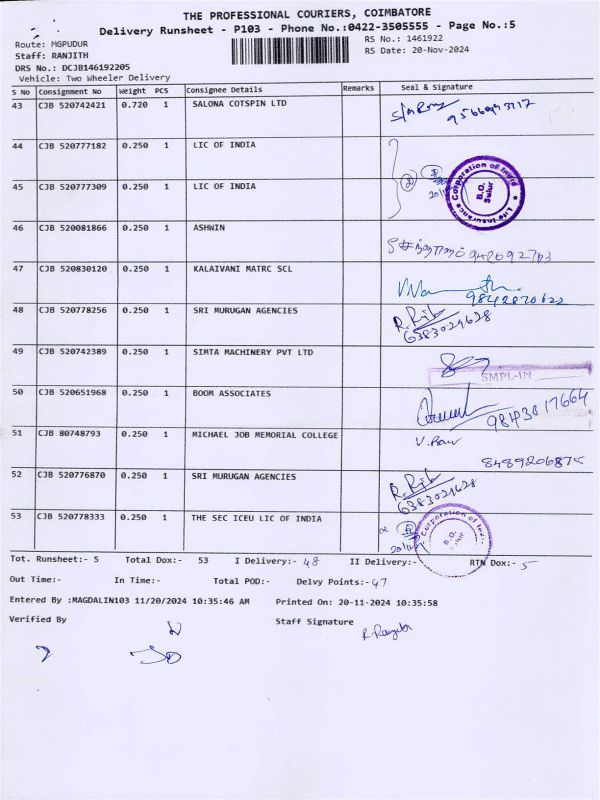 THE PROFESSIONAL COURIERS, COIMBATORE
Delivery Runsheet - P103 - Phone No.:0422-3505555 - Page No.:5
Route: MGPUDUR
RS No.: 1461922
Staff: RANJITH
RS Date: 20-Nov-2024
DRS No.: DCJB146192205
Vehicle: Two Wheeler Delivery
S No Consignment No Weight PCS Consignee Details Remarks Seal & Signature
43 CJB 520742421 0.720 1 SALONA COTSPIN LTD
44 CJB 520777182 0.250 1 LIC OF INDIA
45 CJB 520777309 0.250 1 LIC OF INDIA
Life Insurance Corporation of India
B.O.
Sulur
46 CJB 520081866 0.250 1 ASHWIN
47 CJB 520830120 0.250 1 KALAIVANI MATRC SCL
9842870622
48 CJB 520778256 0.250 1 SRI MURUGAN AGENCIES
6383029628
49 CJB 520742389 0.250 1 SIMTA MACHINERY PVT LTD
SMPL-IN
50 CJB 520651968 0.250 1 BOOM ASSOCIATES
9843017664
51 CJB 80748793 0.250 1 MICHAEL JOB MEMORIAL COLLEGE
8489206875
52 CJB 520776870 0.250 1 SRI MURUGAN AGENCIES
6383029628
53 CJB 520778333 0.250 1 THE SEC ICEU LIC OF INDIA
Corporation of
B.O.
Tot. Runsheet:- 5 Total Dox:- 53 I Delivery:- 48 II Delivery:- RTN Dox:- 5
Out Time:- In Time:- Total POD:- Delvy Points:- 47
Entered By :MAGDALIN103 11/20/2024 10:35:46 AM Printed On: 20-11-2024 10:35:58
Verified By Staff Signature